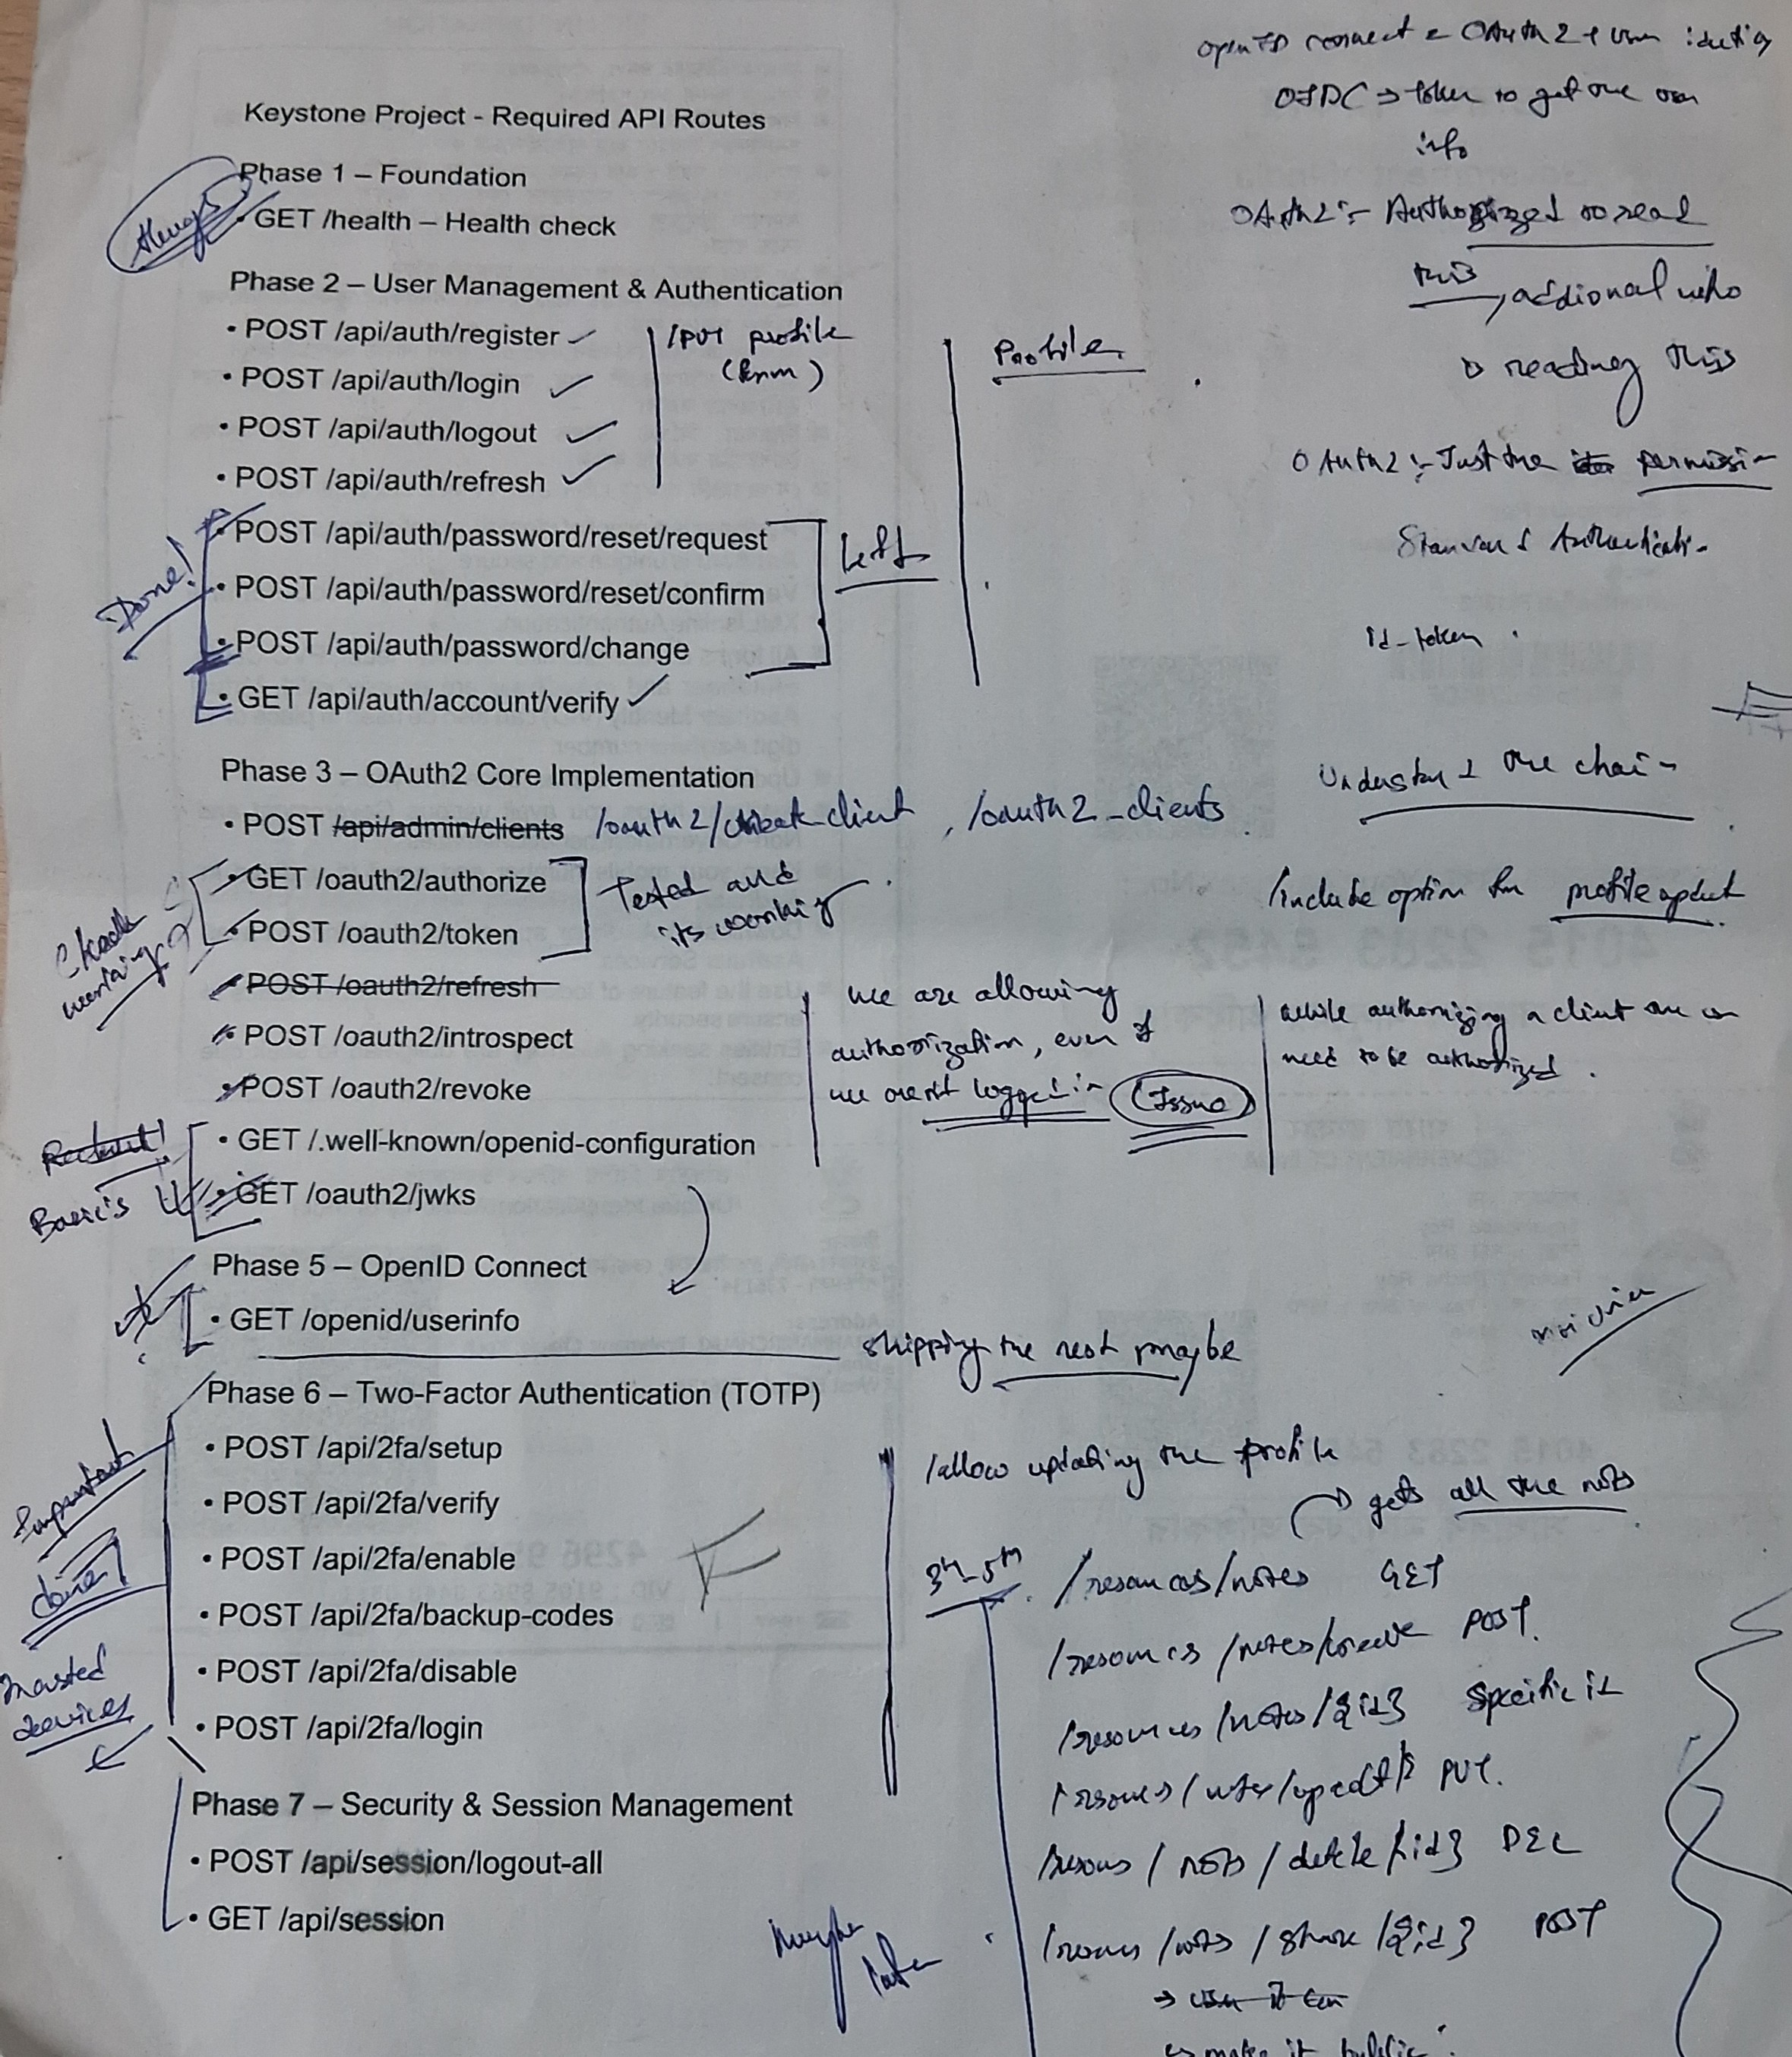 OpenID connect = OAuth2 +
OIDC → token to get the
info
Keystone Project - Required API Routes
Phase 1 – Foundation
• GET /health – Health check
OAuth2 :- Authorized to read
this, addional who
reading this
Phase 2 – User Management & Authentication
• POST /api/auth/register
• POST /api/auth/login
• POST /api/auth/logout
• POST /api/auth/refresh
/PUT profile
Profile
OAuth2 :- Just the permission
• POST /api/auth/password/reset/request
• POST /api/auth/password/reset/confirm
• POST /api/auth/password/change
• GET /api/auth/account/verify
Done!
Left
id_token
Understand the chain
Phase 3 – OAuth2 Core Implementation
• POST /api/admin/clients /oauth2/ client , /oauth2_clients
• GET /oauth2/authorize
• POST /oauth2/token
Tested and
its working
/include option for profile updat
• POST /oauth2/refresh
• POST /oauth2/introspect
• POST /oauth2/revoke
we are allowing
authorization, even if
we arent logged in (Issue)
while authorizing a client
need to be authorized.
• GET /.well-known/openid-configuration
• GET /oauth2/jwks
Basic's
Phase 5 – OpenID Connect
• GET /openid/userinfo
shipping the rest maybe
Phase 6 – Two-Factor Authentication (TOTP)
• POST /api/2fa/setup
• POST /api/2fa/verify
• POST /api/2fa/enable
• POST /api/2fa/backup-codes
• POST /api/2fa/disable
• POST /api/2fa/login
Important
done!
devices
/allow updating the profile
gets all the nots
/resources/notes GET
/resources/notes/create POST.
/resources/notes/{id} specific id
PUT.
{id} DEL
/share/{id} POST
Phase 7 – Security & Session Management
• POST /api/session/logout-all
• GET /api/session
Maybe
Later
make it public